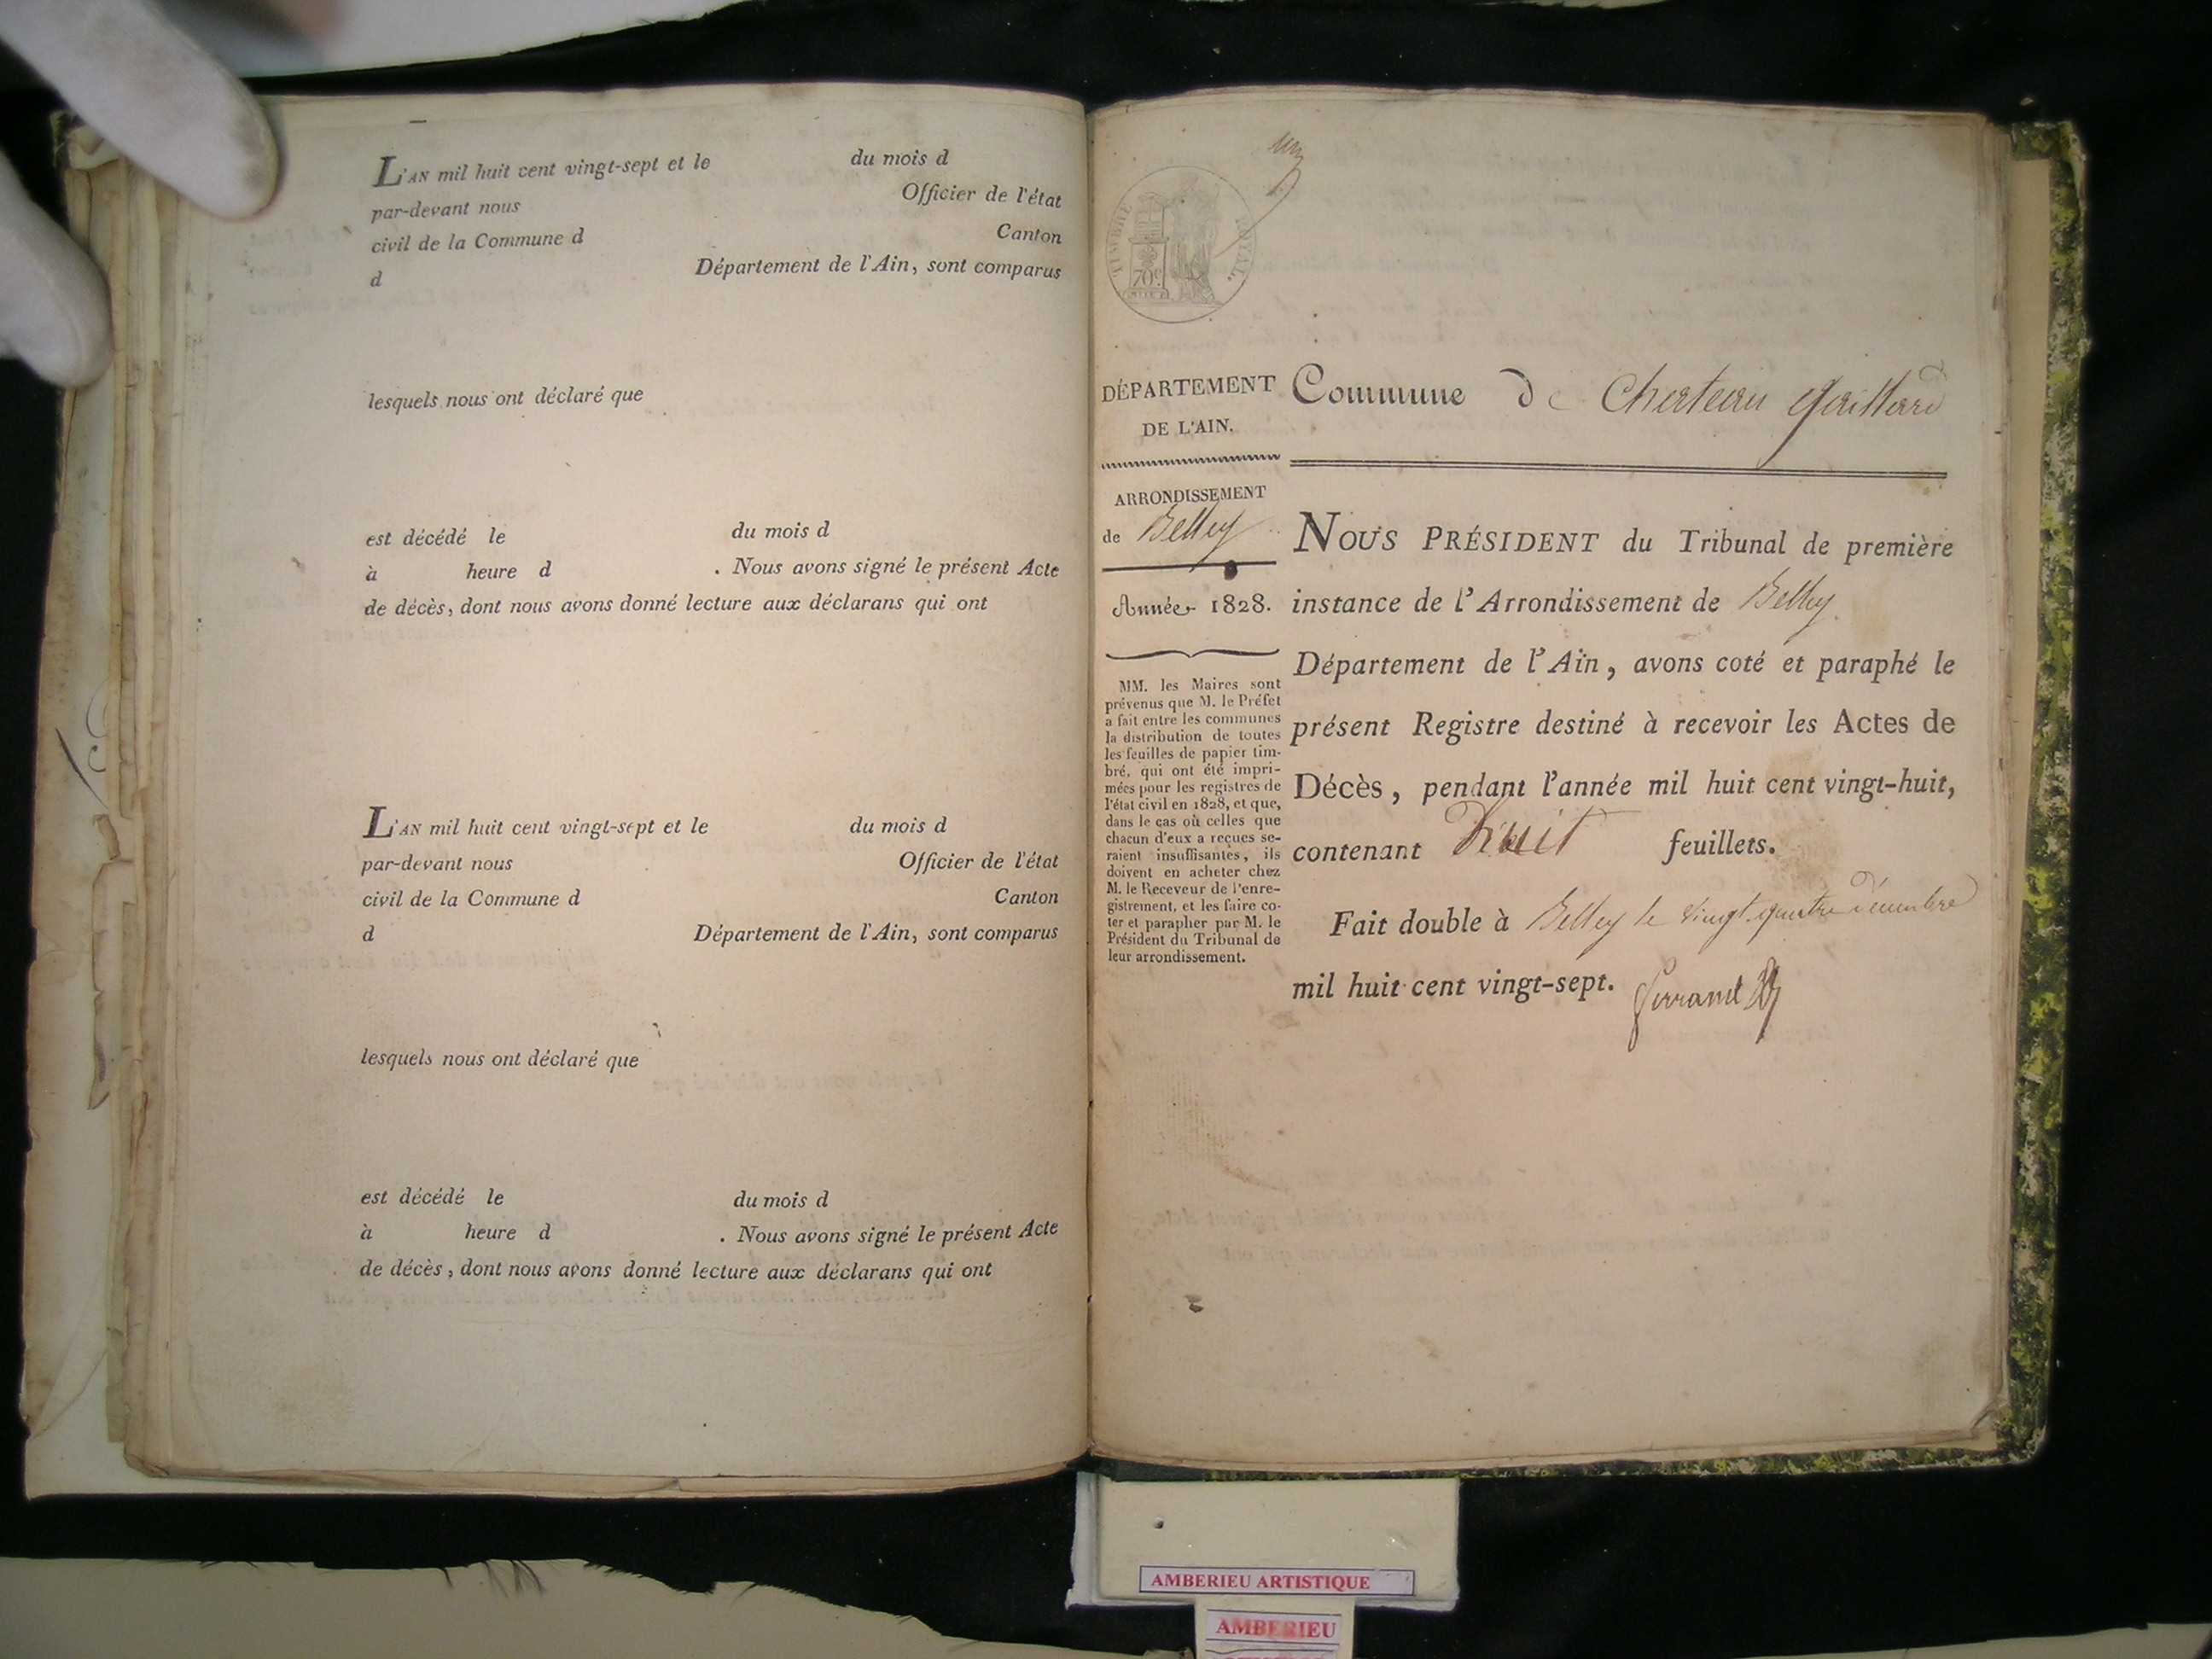 L'AN mil huit cent vingt-sept et le du mois d
par-devant nous Officier de l'état
civil de la Commune d Canton
d Département de l'Ain, sont comparus
lesquels nous ont déclaré que
est décédé le du mois d
à heure d . Nous avons signé le présent Acte
de décès, dont nous avons donné lecture aux déclarans qui ont
L'AN mil huit cent vingt-sept et le du mois d
par-devant nous Officier de l'état
civil de la Commune d Canton
d Département de l'Ain, sont comparus
lesquels nous ont déclaré que
est décédé le du mois d
à heure d . Nous avons signé le présent Acte
de décès, dont nous avons donné lecture aux déclarans qui ont
TIMBRE ROYAL.
70c.
DÉPARTEMENT
DE L'AIN.
ARRONDISSEMENT
de Belley
Année 1828.
MM. les Maires sont
prévenus que M. le Préfet
a fait entre les communes
la distribution de toutes
les feuilles de papier tim-
bré, qui ont été impri-
mées pour les registres de
l'état civil en 1828, et que,
dans le cas où celles que
chacun d'eux a reçues se-
raient insuffisantes, ils
doivent en acheter chez
M. le Receveur de l'enre-
gistrement, et les faire co-
ter et parapher par M. le
Président du Tribunal de
leur arrondissement.
Commune de Chateau gaillard
NOUS PRÉSIDENT du Tribunal de première
instance de l'Arrondissement de Belley
Département de l'Ain, avons coté et paraphé le
présent Registre destiné à recevoir les Actes de
Décès, pendant l'année mil huit cent vingt-huit,
contenant huit feuillets.
Fait double à Belley le vingt quatre décembre
mil huit cent vingt-sept.
AMBERIEU ARTISTIQUE
AMBERIEU